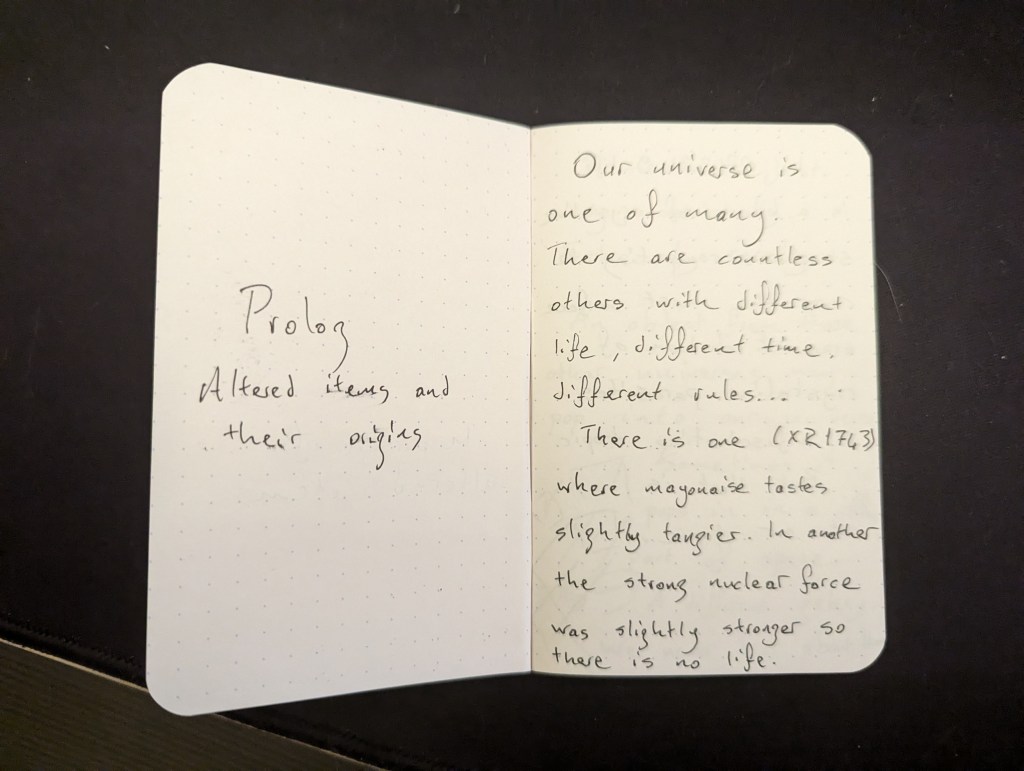 Prolog
Altered items and
their origins
Our universe is
one of many.
There are countless
others with different
life, different time,
different rules...
There is one (XR1743)
where mayonaise tastes
slightly tangier. In another
the strong nuclear force
was slightly stronger so
there is no life.